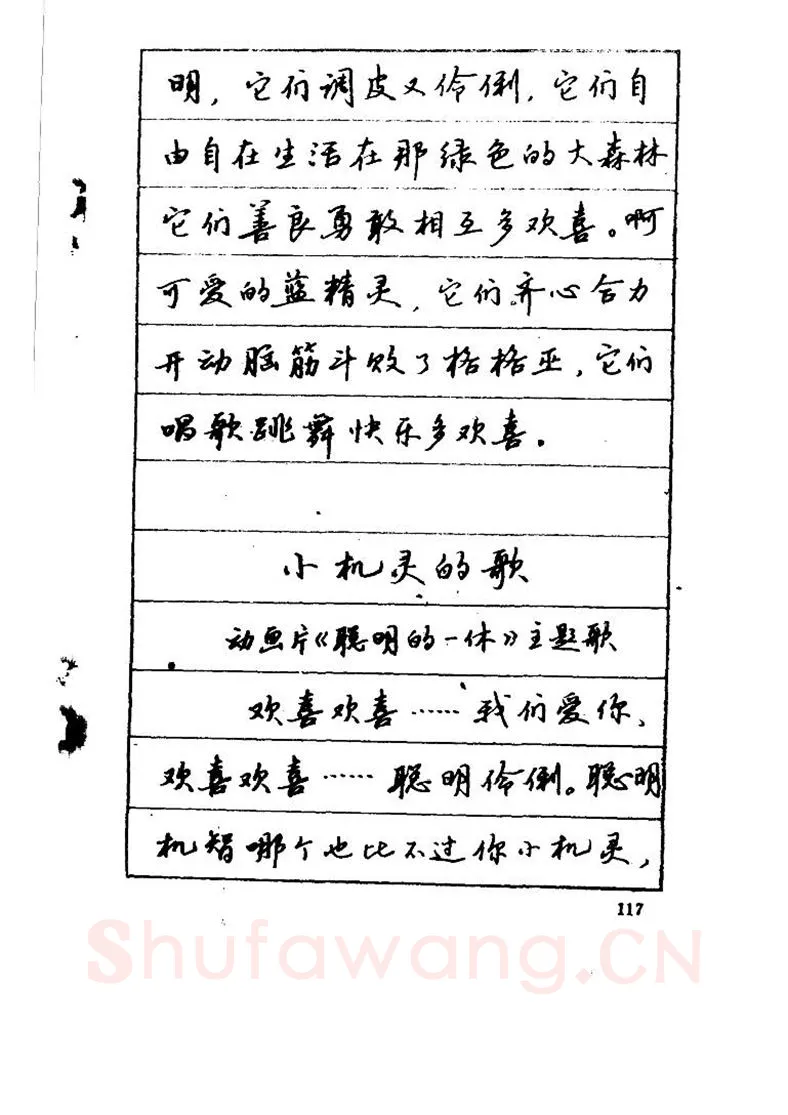 明，它们调皮又伶俐，它们自
由自在生活在那绿色的大森林
它们善良勇敢相互多欢喜。啊
可爱的蓝精灵，它们齐心合力
开动脑筋斗败了格格巫，它们
唱歌跳舞快乐多欢喜。
小机灵的歌
动画片《聪明的一休》主题歌
欢喜欢喜……我们爱你、
欢喜欢喜……聪明伶俐。聪明
机智哪个也比不过你小机灵，
117
Shufawang.CN